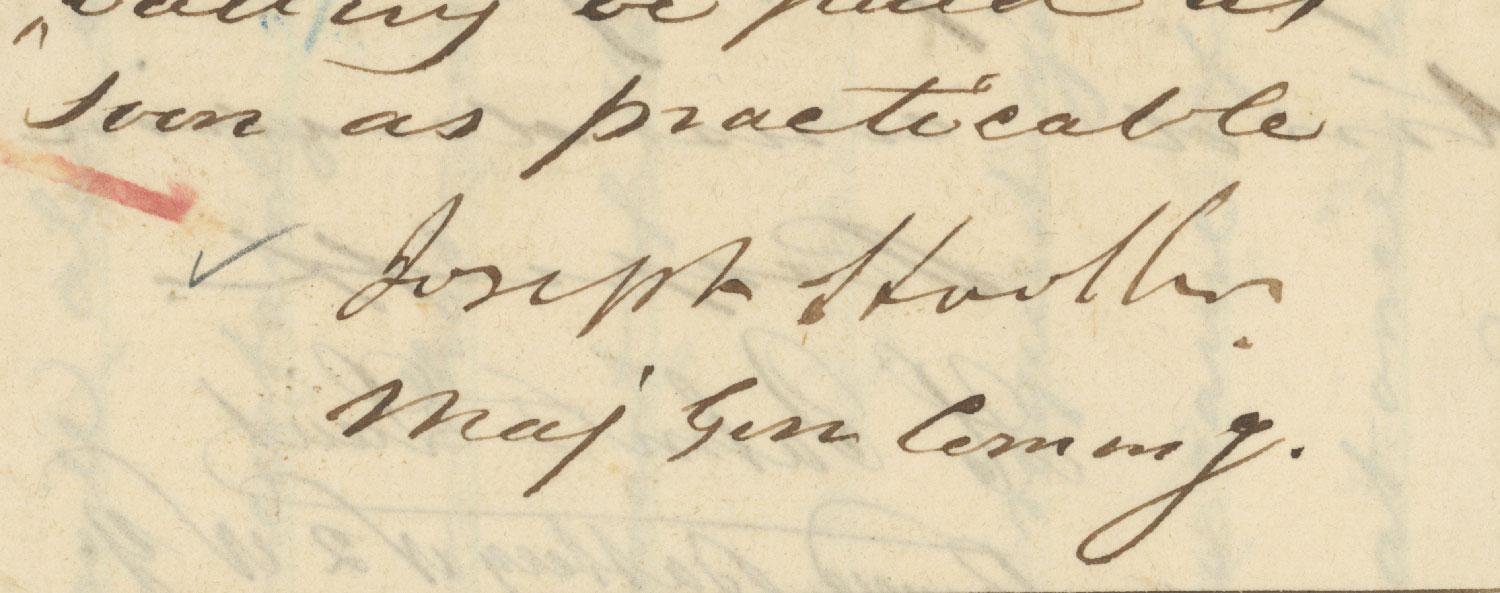 be paid as
soon as practicable
Joseph Hooker
Maj Gen Commg.